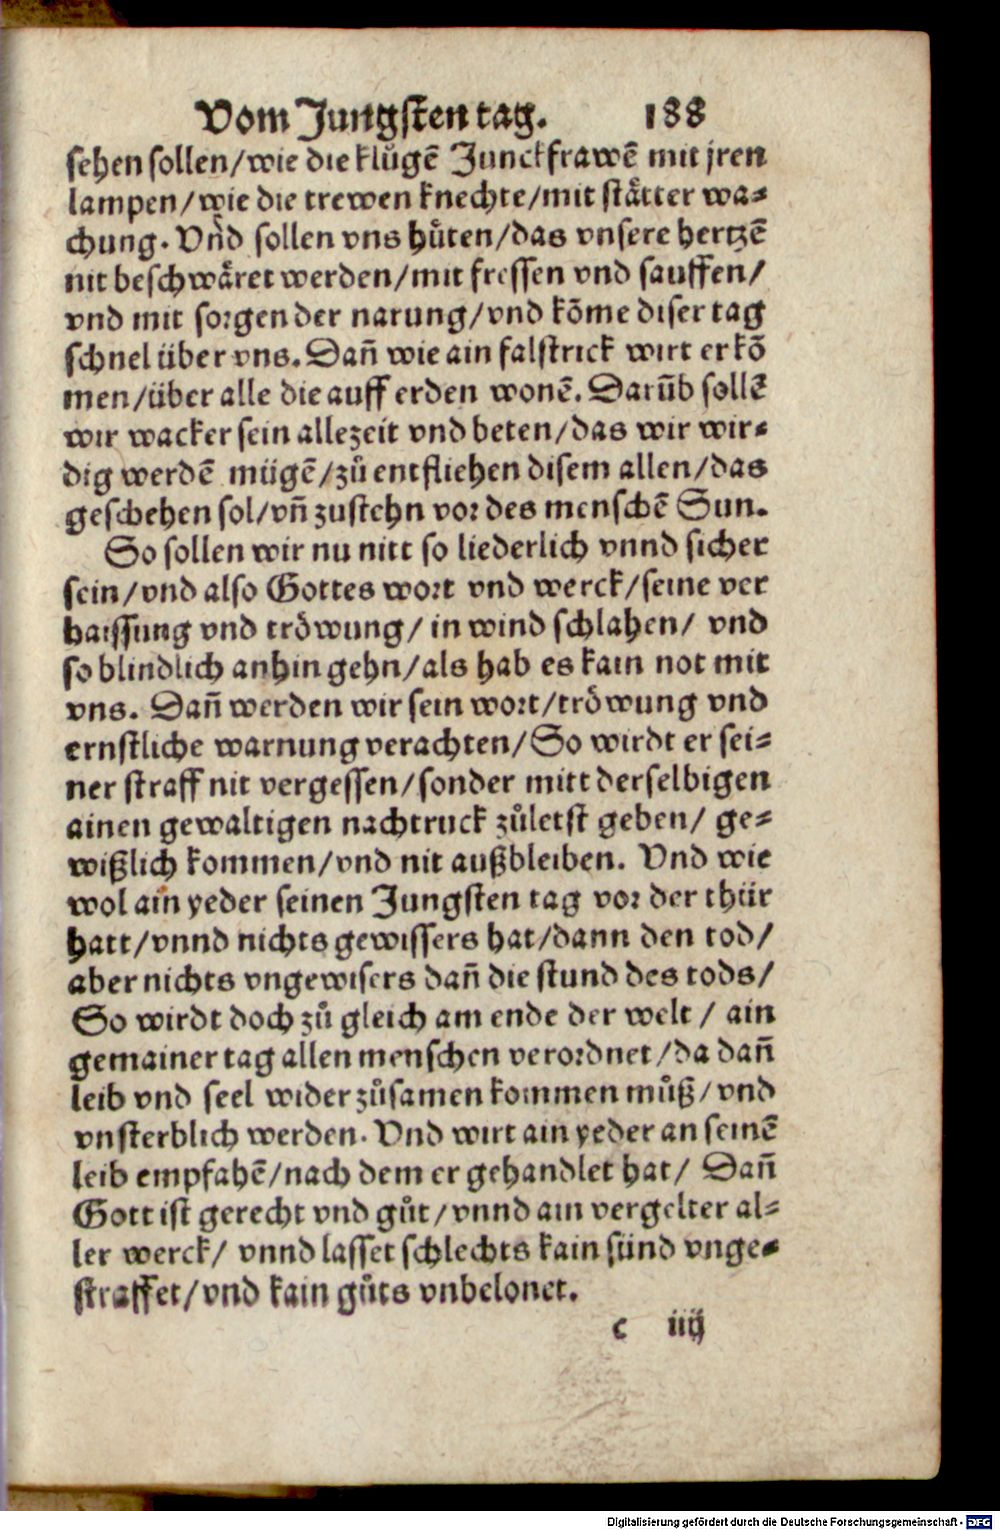 Vom Jungsten tag. 188
sehen sollen/wie die klůgē Junckfrawē mit jren
lampen/wie die trewen knechte/mit ståtter wa-
chung. Vnd sollen vns hůten/das vnsere hertzē
nit beschwåret werden/mit fressen vnd sauffen/
vnd mit sorgen der narung/vnd kōme diser tag
schnel über vns. Dañ wie ain falstrick wirt er kō
men/über alle die auff erden wonē. Darūb sollē
wir wacker sein allezeit vnd beten/das wir wir-
dig werdē mügē/zů entfliehen disem allen/das
geschehen sol/vñ zustehn vor des menschē Sun.
So sollen wir nu nitt so liederlich vnnd sicher
sein/vnd also Gottes wort vnd werck/seine ver
haissung vnd tröwung/ in wind schlahen/ vnd
so blindlich anhin gehn/als hab es kain not mit
vns. Dañ werden wir sein wort/tröwung vnd
ernstliche warnung verachten/So wirdt er sei-
ner straff nit vergessen/sonder mitt derselbigen
ainen gewaltigen nachtruck zůletst geben/ ge-
wißlich kommen/vnd nit außbleiben. Vnd wie
wol ain yeder seinen Jungsten tag vor der thür
hatt/vnnd nichts gewissers hat/dann den tod/
aber nichts vngewisers dañ die stund des tods/
So wirdt doch zů gleich am ende der welt / ain
gemainer tag allen menschen verordnet/da dañ
leib vnd seel wider zůsamen kommen můß/vnd
vnsterblich werden. Vnd wirt ain yeder an seinē
leib empfahē/nach dem er gehandlet hat/ Dañ
Gott ist gerecht vnd gůt/vnnd ain vergelter al-
ler werck/ vnnd lasset schlechts kain sünd vnge-
straffet/vnd kain gůts vnbelonet.
c iiij
Digitalisierung gefördert durch die Deutsche Forschungsgemeinschaft - DFG